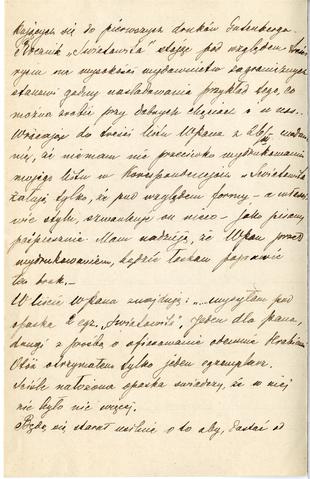 kających się do pierwszych druków Gutenberga.
Rocznik „Światowita” stojąc pod względem treś-
nym na wysokości wydawnictw zagranicznych
stanowi godny naśladowania przykład tego, co
można zrobić przy dobrych chęciach i u nas.
Wracając do treści listu WPana z 26/
nię, że niemam nic przeciwko wydrukowaniu
mojego listu w Korespondencjach „Światowita”
Żałuję tylko, że pod względem formy – a właści-
wie stylu, szwankuje on nieco – jako pisany
pośpiesznie. Mam nadzieję, że WPan przed
wydrukowaniem, będzie łaskaw poprawić
ten brak. –
W liście WPana znajduję: „...wysyłam pod
opaską 2 egz. „Światowita”, jeden dla pana,
drugi z prośbą o ofiarowanie obecnie Hrabiemu
Otóż otrzymałem tylko jeden egzemplarz.
Ściśle nałożona opaska świadczy, że w niej
nic było nic więcej.
Będę się starał usilnie o to aby, dostać od